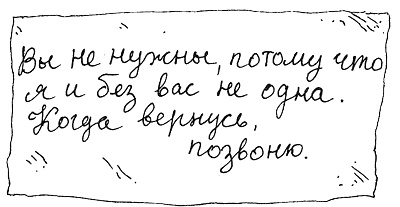 Вы не нужны, потому что
я и без вас не одна.
Когда вернусь,
позвоню.